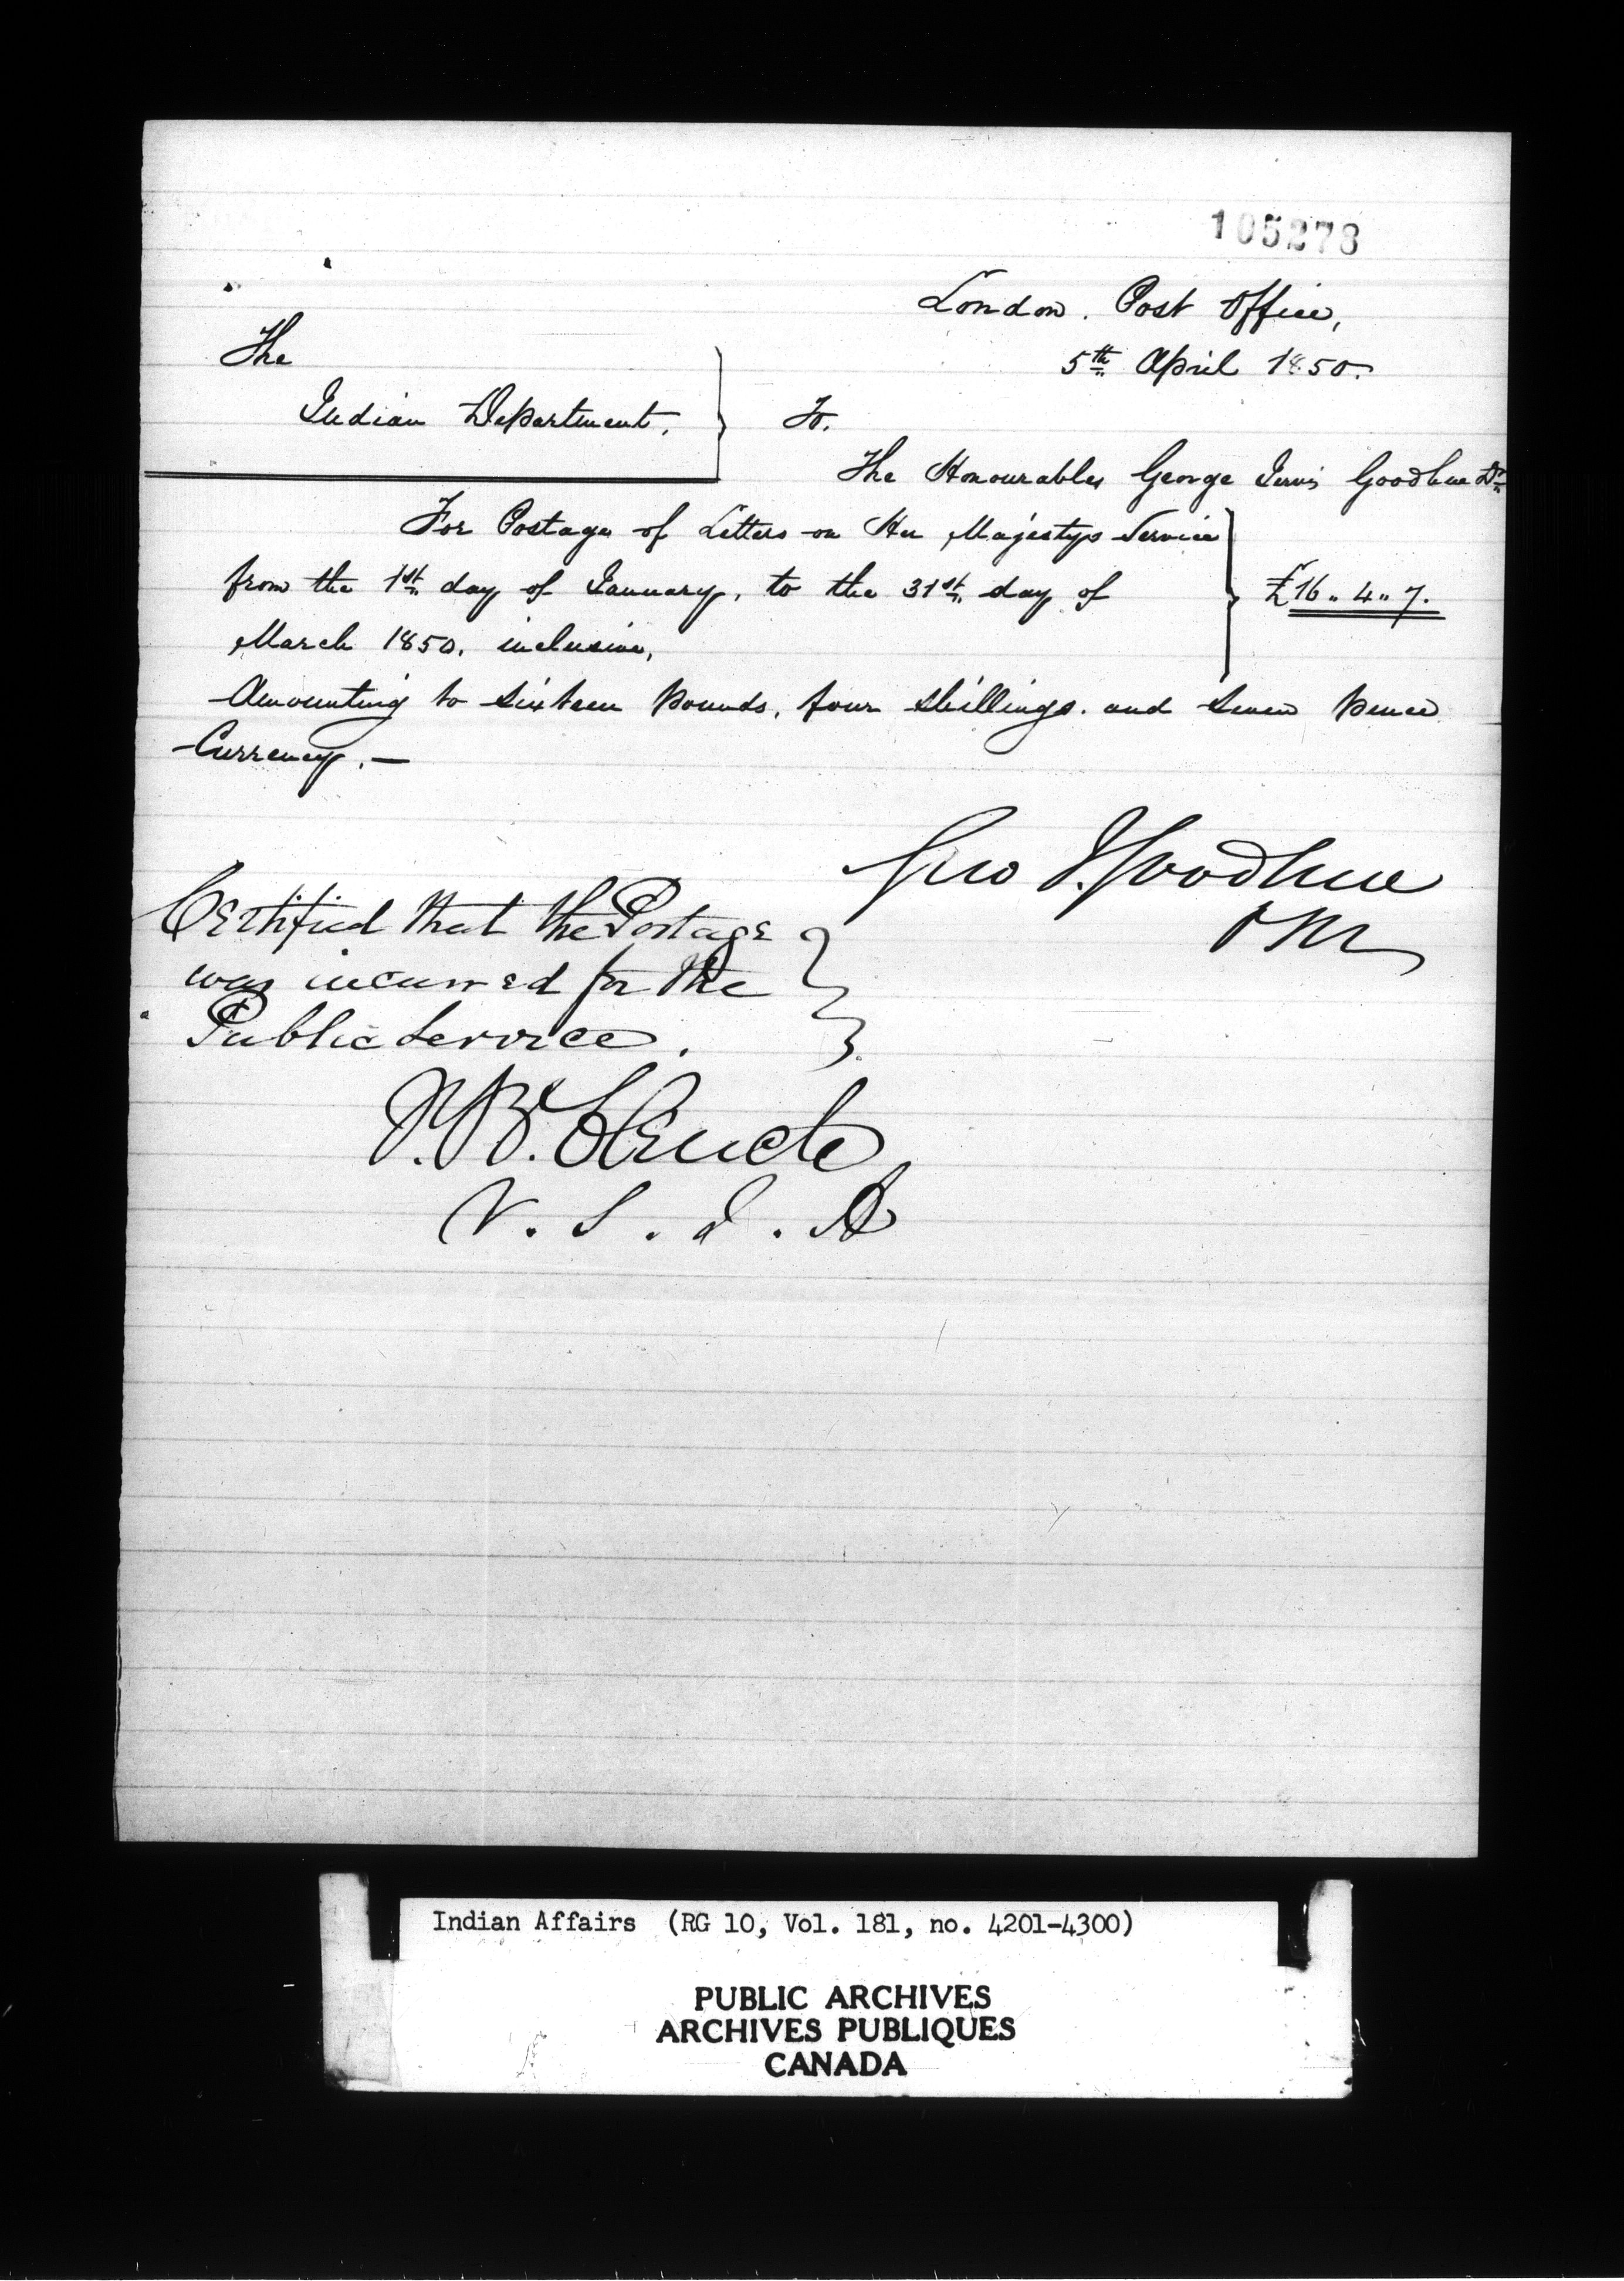 105278
London. Post Office,
5th April 1850.
The
Indian Department.
To.
The Honourable George Jervis Goodhue Dr
For Postage of Letters on Her Majestys Service
from the 1st day of January, to the 31st day of
March 1850. inclusive,
£16 „ 4 „ 7.
Amounting to sixteen pounds, four shillings. and seven pence
Currency. —
Geo J. Goodhue
PM
Certified that the Postage
was incurred for the
Public Service.
V. S. I. A
Indian Affairs (RG 10, Vol. 181, no. 4201-4300)
PUBLIC ARCHIVES
ARCHIVES PUBLIQUES
CANADA